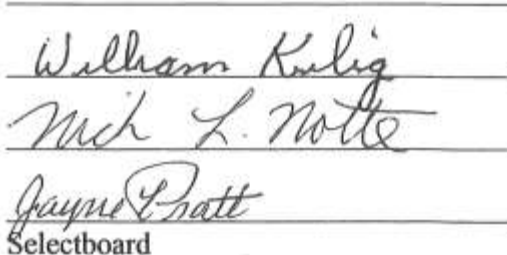 William Kulig
Nich L. Notte
Jayne Pratt
Selectboard